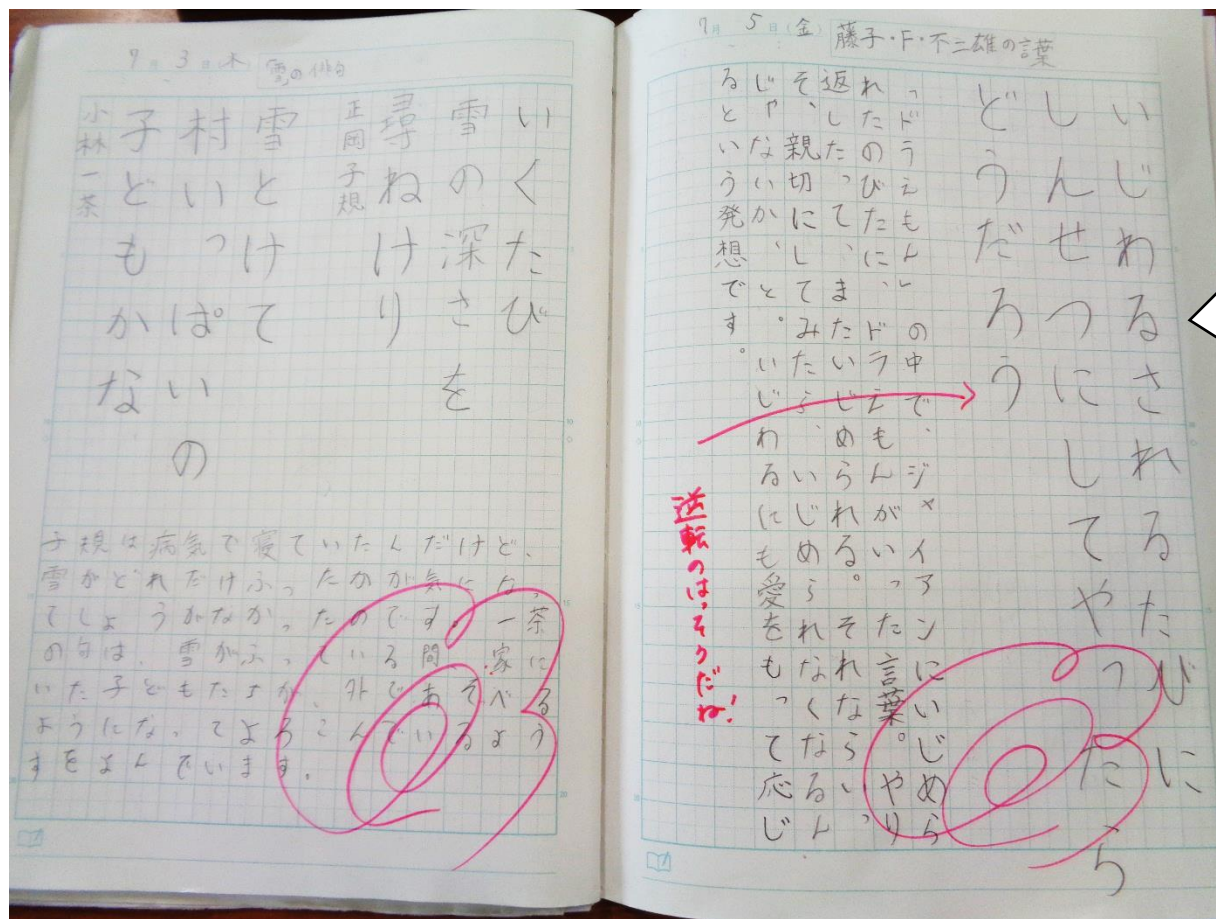 9月3日 木
雪の俳句
いくたび
雪の深さを
尋ねけり
正岡子規
雪とけて
村いっぱいの
子どもかな
小林一茶
子規は病気で寝ていたんだけど、
雪がどれだけふったかが気になっ
てしょうがなかったのです。一茶
の句は、雪がふっている間、家に
いた子どもたちが、外であそべる
ようになってよろこんでいるよう
すをよんでいます。
9月5日(金)
藤子・F・不二雄の言葉
いじわるされるたびに
しんせつにしてやったら
どうだろう
「ドラえもん」の中で、ジャイアンにいじめら
れたのびたに、ドラえもんがいった言葉。やり
返したって、またいじめられる。それならいっ
そ、親切にしてみたら、いじめられなくなるん
じゃないか、と。いじわるにも愛をもって応じ
るという発想です。
逆転のはっそうだね!